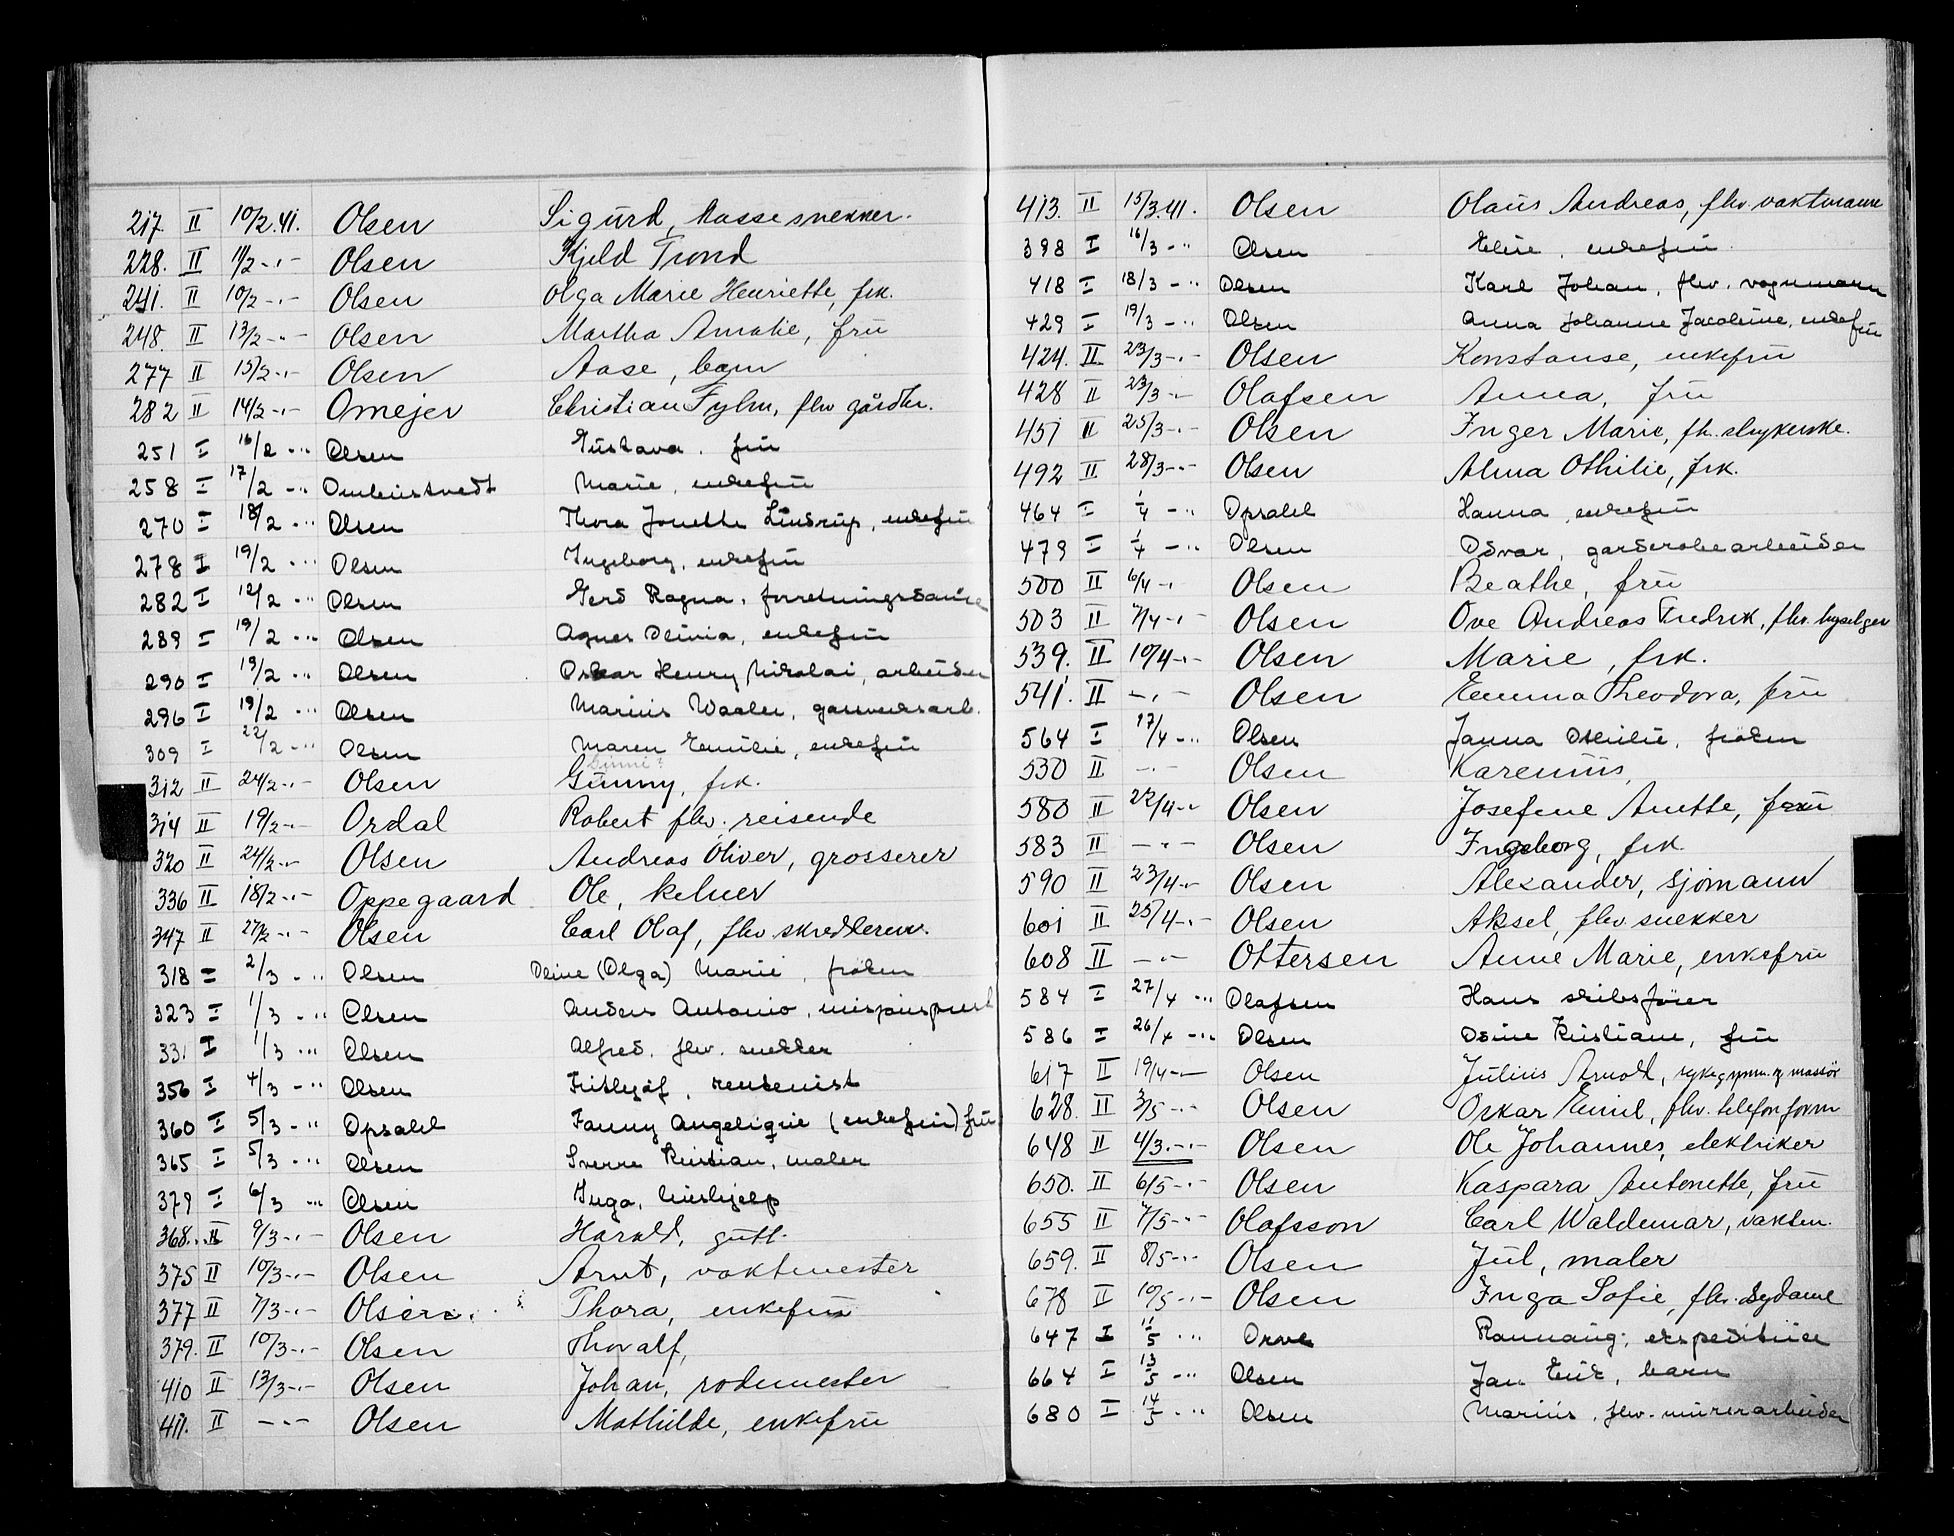 217. II 10/2.41. Olsen Sigurd, kassesnekker.
228. II 11/2 -"- Olsen Kjeld Trond
241. II 10/2 -"- Olsen Olga Marie Henriette, frk.
248. II 13/2 -"- Olsen Martha Amalie, fru
277 II 15/2 -"- Olsen Aase, barn
282 II 14/2 -"- Omejer Christian Fylm, fhv gårdbr.
251 I 16/2 -"- Olsen Gustava, fru
258 I 17/2 -"- Marie, enkefru
270 I 18/2 -"- Olsen Thora Jonette Lindrup, enkefru
278 I 19/2 -"- Olsen Ingeborg, enkefru
282 I 12/2 -"- Olsen Gerd Ragna, forretningsdame
289 I 19/2 -"- Olsen Agnes Olivia, enkefru
290 I 19/2 -"- Olsen Oskar Henry Nikolai, arbeider
296 I 19/2 -"- Olsen Marius Waaler, gassverksarb.
309 I 22/2 -"- Olsen Maren Emilie, enkefru
Gunni?
312 II 24/2 -"- Olsen Gunny, frk.
314 II 19/2 -"- Ordal Robert fhv. reisende
320 II 24/2 -"- Olsen Andreas Oliver, grosserer
336 II 18/2 -"- Oppegaard Ole, kelner
347 II 27/2 -"- Olsen Carl Olaf, fhv skredderm.
318 I 2/3 -"- Olsen Oline (Olga) Marie, frøken
323 I 1/3 -"- Olsen Anders Antonio, misjonsprest
331 I 1/3 -"- Olsen Alfred, fhv. snekker
356 I 4/3 -"- Olsen Fritjof, rentenist
360 I 5/3 -"- Opsahl Fanny Angelique (enkefru) fru
365 I 5/3 -"- Olsen Sverre Kristian, maler
379 I 6/3 -"- Olsen Inga, hushjelp
368. II 9/3 -"- Olsen Harald, gutt.
375 II 10/3 -"- Olsen Arnt, vaktmester
377 II 7/3 -"- Olsen Thora, enkefru
379. II 10/3 -"- Olsen Thoralf,
410 II 13/3 -"- Olsen Johan, rodemester
411. II -"- Olsen Mathilde, enkefru
413. II 15/3.41. Olsen Olaus Andreas, fhv. vaktmann
398 I 16/3 -"- Olsen Elise, enkefru
418 I 18/3 -"- Olsen Karl Johan, fhv. vognmann
429 I 19/3 -"- Olsen Anna Johanne Jacobine, enkefru
424. II 23/3 -"- Olsen Konstanse, enkefru
428 II 23/3 -"- Olafsen Anna, fru
451 II 25/3 -"- Olsen Inger Marie, fh. strykerske.
492 II 28/3 -"- Olsen Alma Othilie, frk.
464 I 1/4 -"- Opsahl Hanna, enkefru
479 I 1/4 -"- Olsen Odvar, garderobearbeider
500 II 6/4 -"- Olsen Beathe, fru
503 II 7/4 -"- Olsen Ove Andreas Fredrik, fhv. hyselger
539. II 10/4 -"- Olsen Marie, frk.
541. II -"- Olsen Emma Theodora, fru
564 I 17/4 -"- Olsen Janna Othilie, frøken
530 II -"- Olsen Karenius,
580 II 22/4 -"- Olsen Josefine Anette, fru
583 II -"- Olsen Ingeborg, frk.
590 II 23/4 -"- Olsen Alexander, sjømann
601 II 25/4 -"- Olsen Aksel, fhv snekker
608 II -"- Ottersen Anne Marie, enkefru
584 I 27/4 -"- Olafsen Hans skibsfører
586 I 26/4 -"- Olsen Osine Kristiane, fru
617 II 19/4 -"- Olsen Julius Arnold, sykegymn. og massør
628. II 3/5 -"- Olsen Oskar Emil, fhv. telefonform
648 II 4/3 -"- Olsen Ole Johannes, elektriker
650. II 6/5 -"- Olsen Kaspara Antonette, fru
655 II 7/5 -"- Olafsson Carl Waldemar, vaktm.
659. II 8/5 -"- Olsen Jul, maler
678 II 10/5 -"- Olsen Inga Sofie, fhv. sydame
647 I 11/5 -"- Orve Rannaug, ekspeditrice
664 I 13/5 -"- Olsen Jan Erik, barn
680 I 14/5 -"- Olsen Marius, fhv. murerarbeider